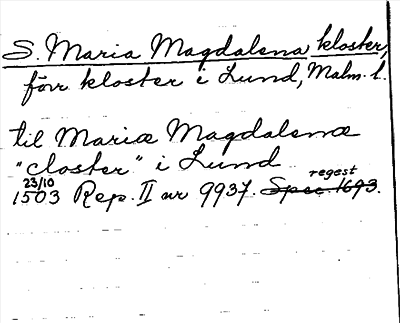 S. Maria Magdalena kloster,
förr kloster i Lund, Malm. l.
til Mariæ Magdalenæ
"closter" i Lund
23/10
1503 Rep. II nr 9937. Spec. 1693. regest